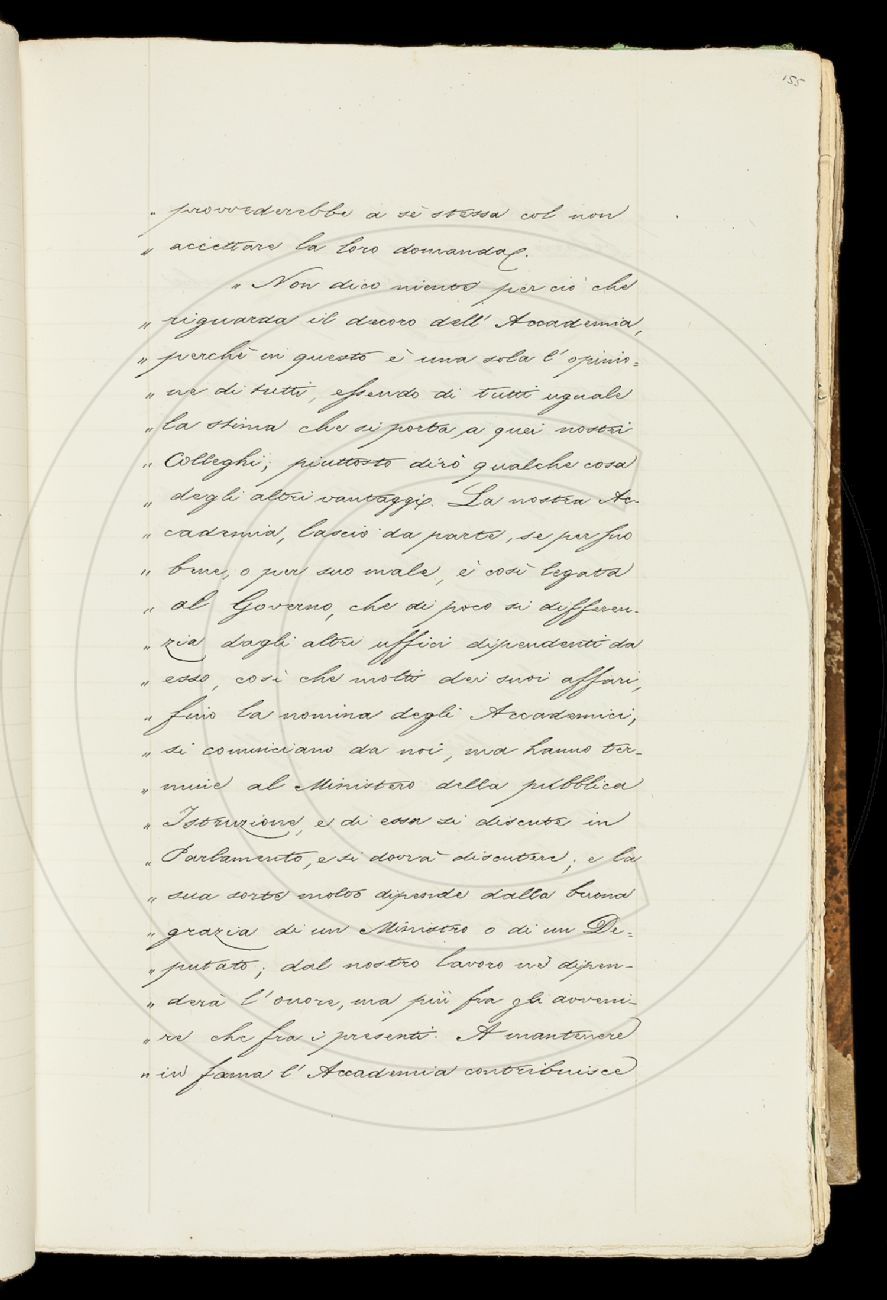 155
„ provvederebbe a sè stessa col non
„ accettare la loro domanda.
„ Non dico niente per ciò che
„ riguarda il decoro dell' Accademia,
„ perchè in questo è una sola l' opinio=
„ ne di tutti, essendo di tutti uguale
„ la stima che si porta a quei nostri
„ Colleghi; piuttosto dirò qualche cosa
„ degli altri vantaggi. La nostra Ac-
„ cademia, lascio da parte, se per suo
„ bene, o per suo male, è così legata
„ al Governo, che di poco si differen-
„ zia dagli altri uffici dipendenti da
„ esso, così che molti dei suoi affari,
„ fino la nomina degli Accademici,
„ si cominciano da noi, ma hanno ter-
„ mine al Ministero della pubblica
„ Istruzione, e di essa si discute in
„ Parlamento, e si dovrà discutere; e la
„ sua sorte molto dipende dalla buona
„ grazia di un Ministro o di un De=
„ putato; dal nostro lavoro nè dipen-
„ derà l' onore, ma più fra gli avveni-
„ re che fra i presenti. A mantenere
„ in fama l' Accademia contribuisce